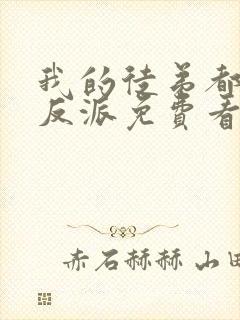 我的徒弟都
反派免費看
赤石赫赫山田